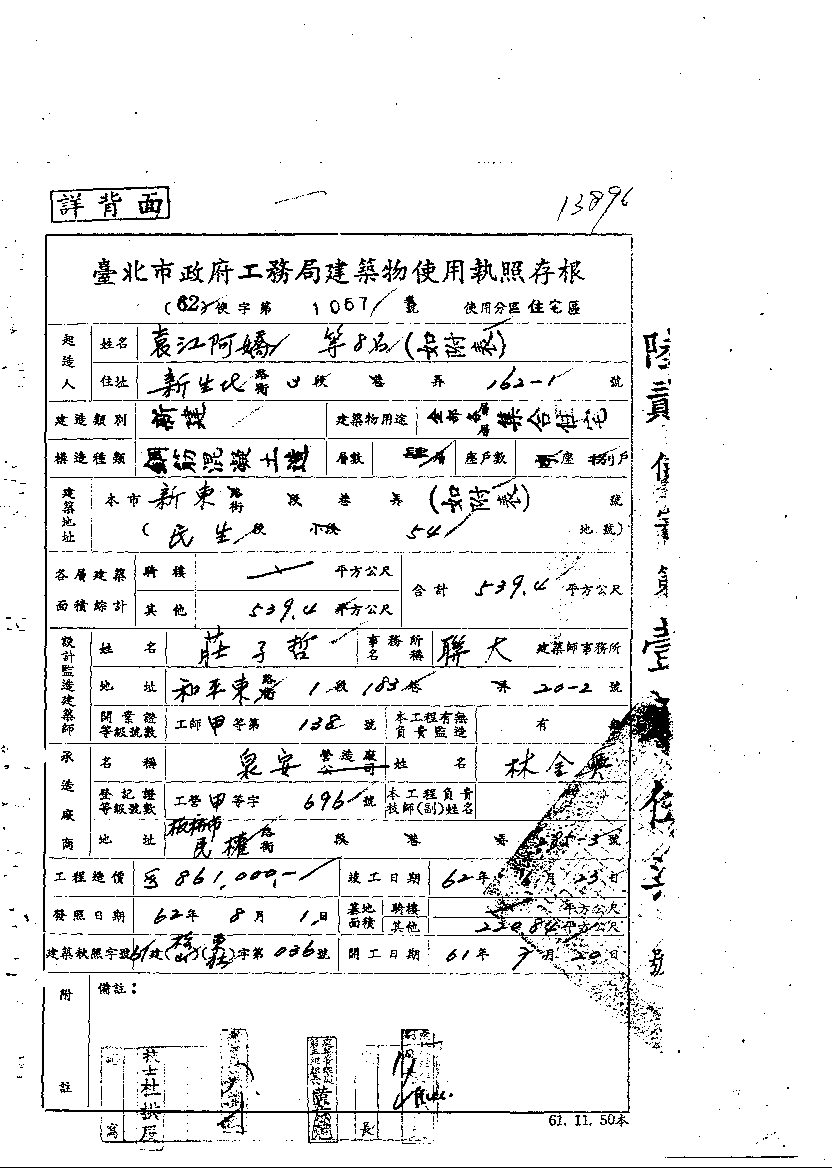 詳背面
13896
臺北市政府工務局建築物使用執照存根
(62)使字第 1057 號 使用分區住宅區
起造人 姓名 袁江阿嬌 等8名(如附表)
住址 新生北 路街 段 巷 弄 162-1 號
建造類別 新建 建築物用途 全部各層集合住宅
構造種類 鋼筋混凝土造 層數 肆層 座戶數 座 捌戶
建築地址 本市 新東 路街 段 巷 弄 (如附表) 號
(民生 段 小段 54 地號)
各層建築面積綜計 騎樓 平方公尺 合計 539.4 平方公尺
其他 539.4 平方公尺
設計監造建築師 姓名 莊子哲 事務所名稱 聯大 建築師事務所
地址 和平東 路街 1段 183巷 弄 20-2 號
開業證等級號數 工師甲等第 138 號 本工程有無負責監造 有
承造廠商 名稱 泉安 營造廠公司 姓名 林金興
登記證等級號數 工營甲等字 696 號 本工程負責技師(副)姓名
地址 板橋市民權 路街 段 巷 -3號
工程造價 861,000.- 竣工日期 62年 6月 23日
發照日期 62年 8月 1日 基地面積 騎樓 平方公尺
其他 220.84 平方公尺
建築執照字號 61建( )( )字第 036號 開工日期 61年 9月 20日
附註 備註：
技士杜拱辰
長
61. 11. 50本
陸貳 第壹 號